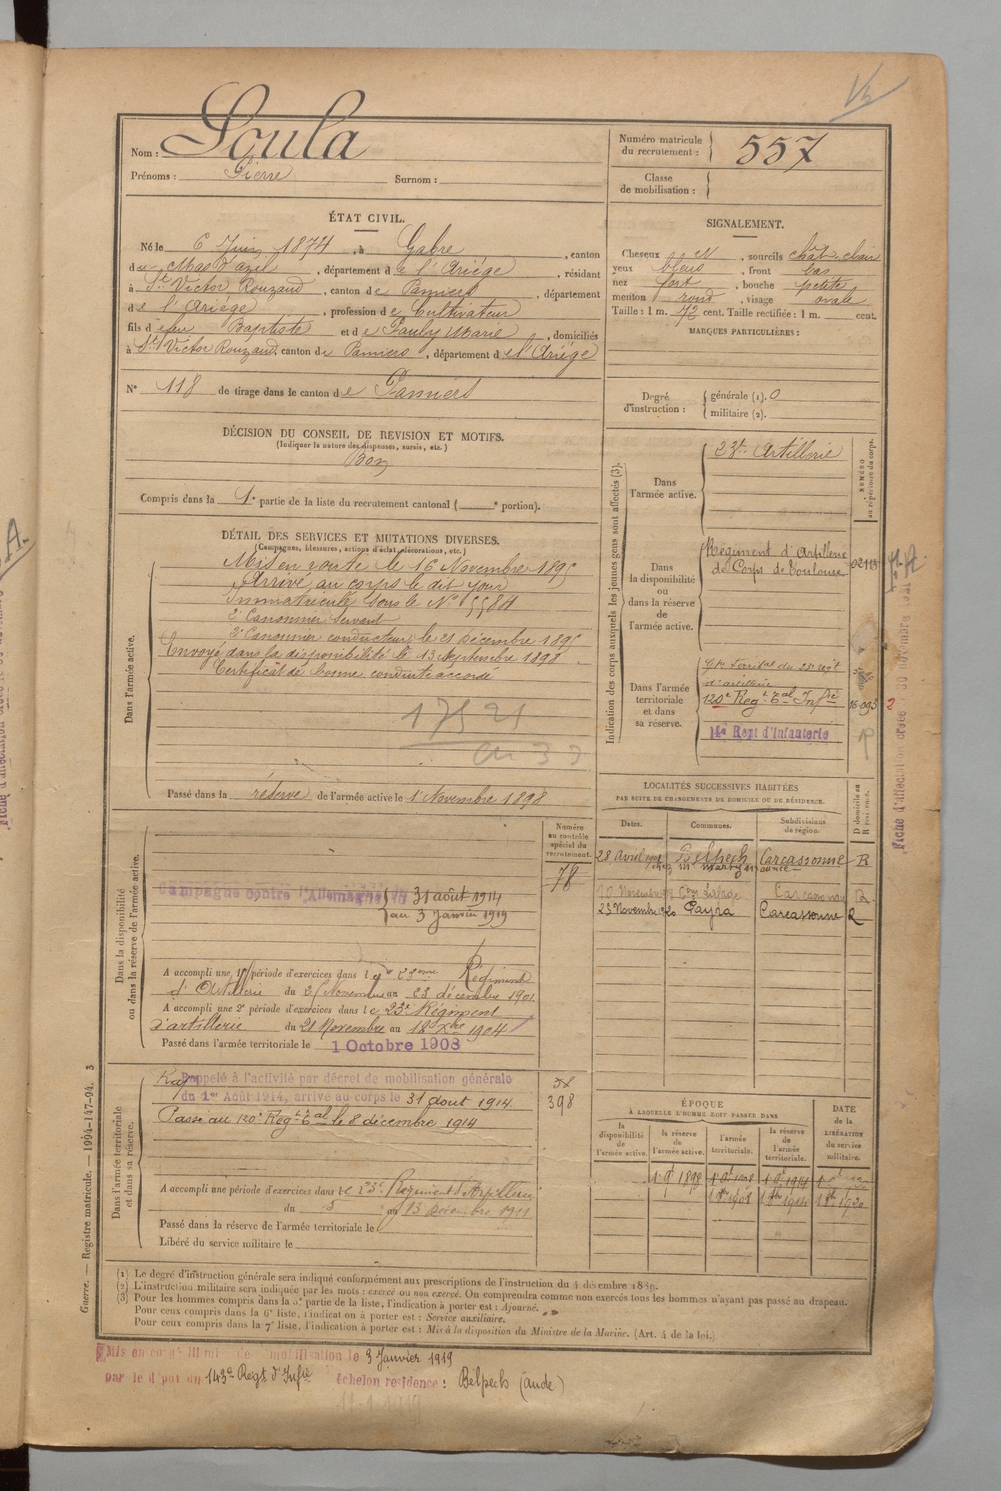 Nom : Soula
Prénoms : Pierre Surnom :
Numéro matricule du recrutement : 557
Classe de mobilisation :
ÉTAT CIVIL.
Né le 6 Juin 1874, à Gabre, canton
du Mas d'azil, département de l'Ariége, résidant
à St Victor Rouzaud, canton de Pamiers, département
de l'Ariége, profession de Cultivateur
fils de feu Baptiste et de Pauly Marie, domiciliés
à St Victor Rouzaud, canton de Pamiers, département de l'Ariége
N° 118 de tirage dans le canton de Pamiers
SIGNALEMENT.
Cheveux et, sourcils chât-clair
yeux bleus, front bas
nez fort, bouche petite
menton rond, visage ovale
Taille : 1 m. 72 cent. Taille rectifiée : 1 m. cent.
MARQUES PARTICULIÈRES :
Degré d'instruction : générale (1). 0
militaire (2).
DÉCISION DU CONSEIL DE REVISION ET MOTIFS.
(Indiquer la nature des dispenses, sursis, etc.)
Bon
Compris dans la 1e partie de la liste du recrutement cantonal ( e portion).
DÉTAIL DES SERVICES ET MUTATIONS DIVERSES.
(Campagnes, blessures, actions d'éclat, décorations, etc.)
Dans l'armée active.
Mis en route le 16 Novembre 1895
Arrivé au corps le dit jour
Immatriculé sous le N°
2e Canonnier servant
2e Canonnier conducteur le 21 décembre 1895
Envoyé dans la disponibilité le 13 Septembre 1898
Certificat de bonne conduite accordé
Passé dans la réserve de l'armée active le 1 Novembre 1898
Indication des corps auxquels les jeunes gens sont affectés (3).
NUMÉRO au répertoire du corps.
Dans l'armée active.
23e Artillerie
Dans la disponibilité ou dans la réserve de l'armée active.
Régiment d'Artillerie
de Corps de Toulouse
Dans l'armée territoriale et dans sa réserve.
d'artillerie
120e Regt Tal Infie
14e Regt d'Infanterie
LOCALITÉS SUCCESSIVES HABITÉES
PAR SUITE DE CHANGEMENTS DE DOMICILE OU DE RÉSIDENCE.
Dates. Communes. Subdivisions de région. D domicile ou R résidence.
28 Avril Belpech Carcassonne R
10 Novembre Carcassonne R
23 Novembre 1920 Payra Carcassonne R
Dans la disponibilité ou dans la réserve de l'armée active.
Numéro au contrôle spécial du recrutement.
78
Campagne contre l'Allemagne du 31 août 1914
au 3 Janvier 1919
A accompli une 1re période d'exercices dans le 23eme Régiment
d'Artillerie du Novembre au 23 décembre 1901
A accompli une 2e période d'exercices dans le 23e Régiment
d'artillerie du 21 Novembre au 18 Xbre 1904
Passé dans l'armée territoriale le 1 Octobre 1908
Dans l'armée territoriale et dans sa réserve.
Rappelé à l'activité par décret de mobilisation générale
du 1er Août 1914, arrivé au corps le 31 aout 1914.
398
Passé au 120e Regt Tal le 8 décembre 1914
A accompli une période d'exercices dans le 23e Régiment d'Artillerie
du 5 au 13 Décembre 1911
Passé dans la réserve de l'armée territoriale le
Libéré du service militaire le
ÉPOQUE
À LAQUELLE L'HOMME DOIT PASSER DANS
DATE de la LIBÉRATION du service militaire.
la disponibilité de l'armée active. la réserve de l'armée active. l'armée territoriale. la réserve de l'armée territoriale.
(1) Le degré d'instruction générale sera indiqué conformément aux prescriptions de l'instruction du 4 décembre 1889.
(2) L'instruction militaire sera indiquée par les mots : exercé ou non exercé. On comprendra comme non exercés tous les hommes n'ayant pas passé au drapeau.
(3) Pour les hommes compris dans la 5e partie de la liste, l'indication à porter est : Ajourné.
Pour ceux compris dans la 6e liste, l'indication à porter est : Service auxiliaire.
Pour ceux compris dans la 7e liste, l'indication à porter est : Mis à la disposition du Ministre de la Marine. (Art. 4 de la loi.)
Mis en congé illimité de démobilisation le 3 Janvier 1919
par le dépôt du 143e Regt d'Infie échelon résidence : Belpech (aude)
Guerre. — Registre matricule. — 1994-147-04. 3